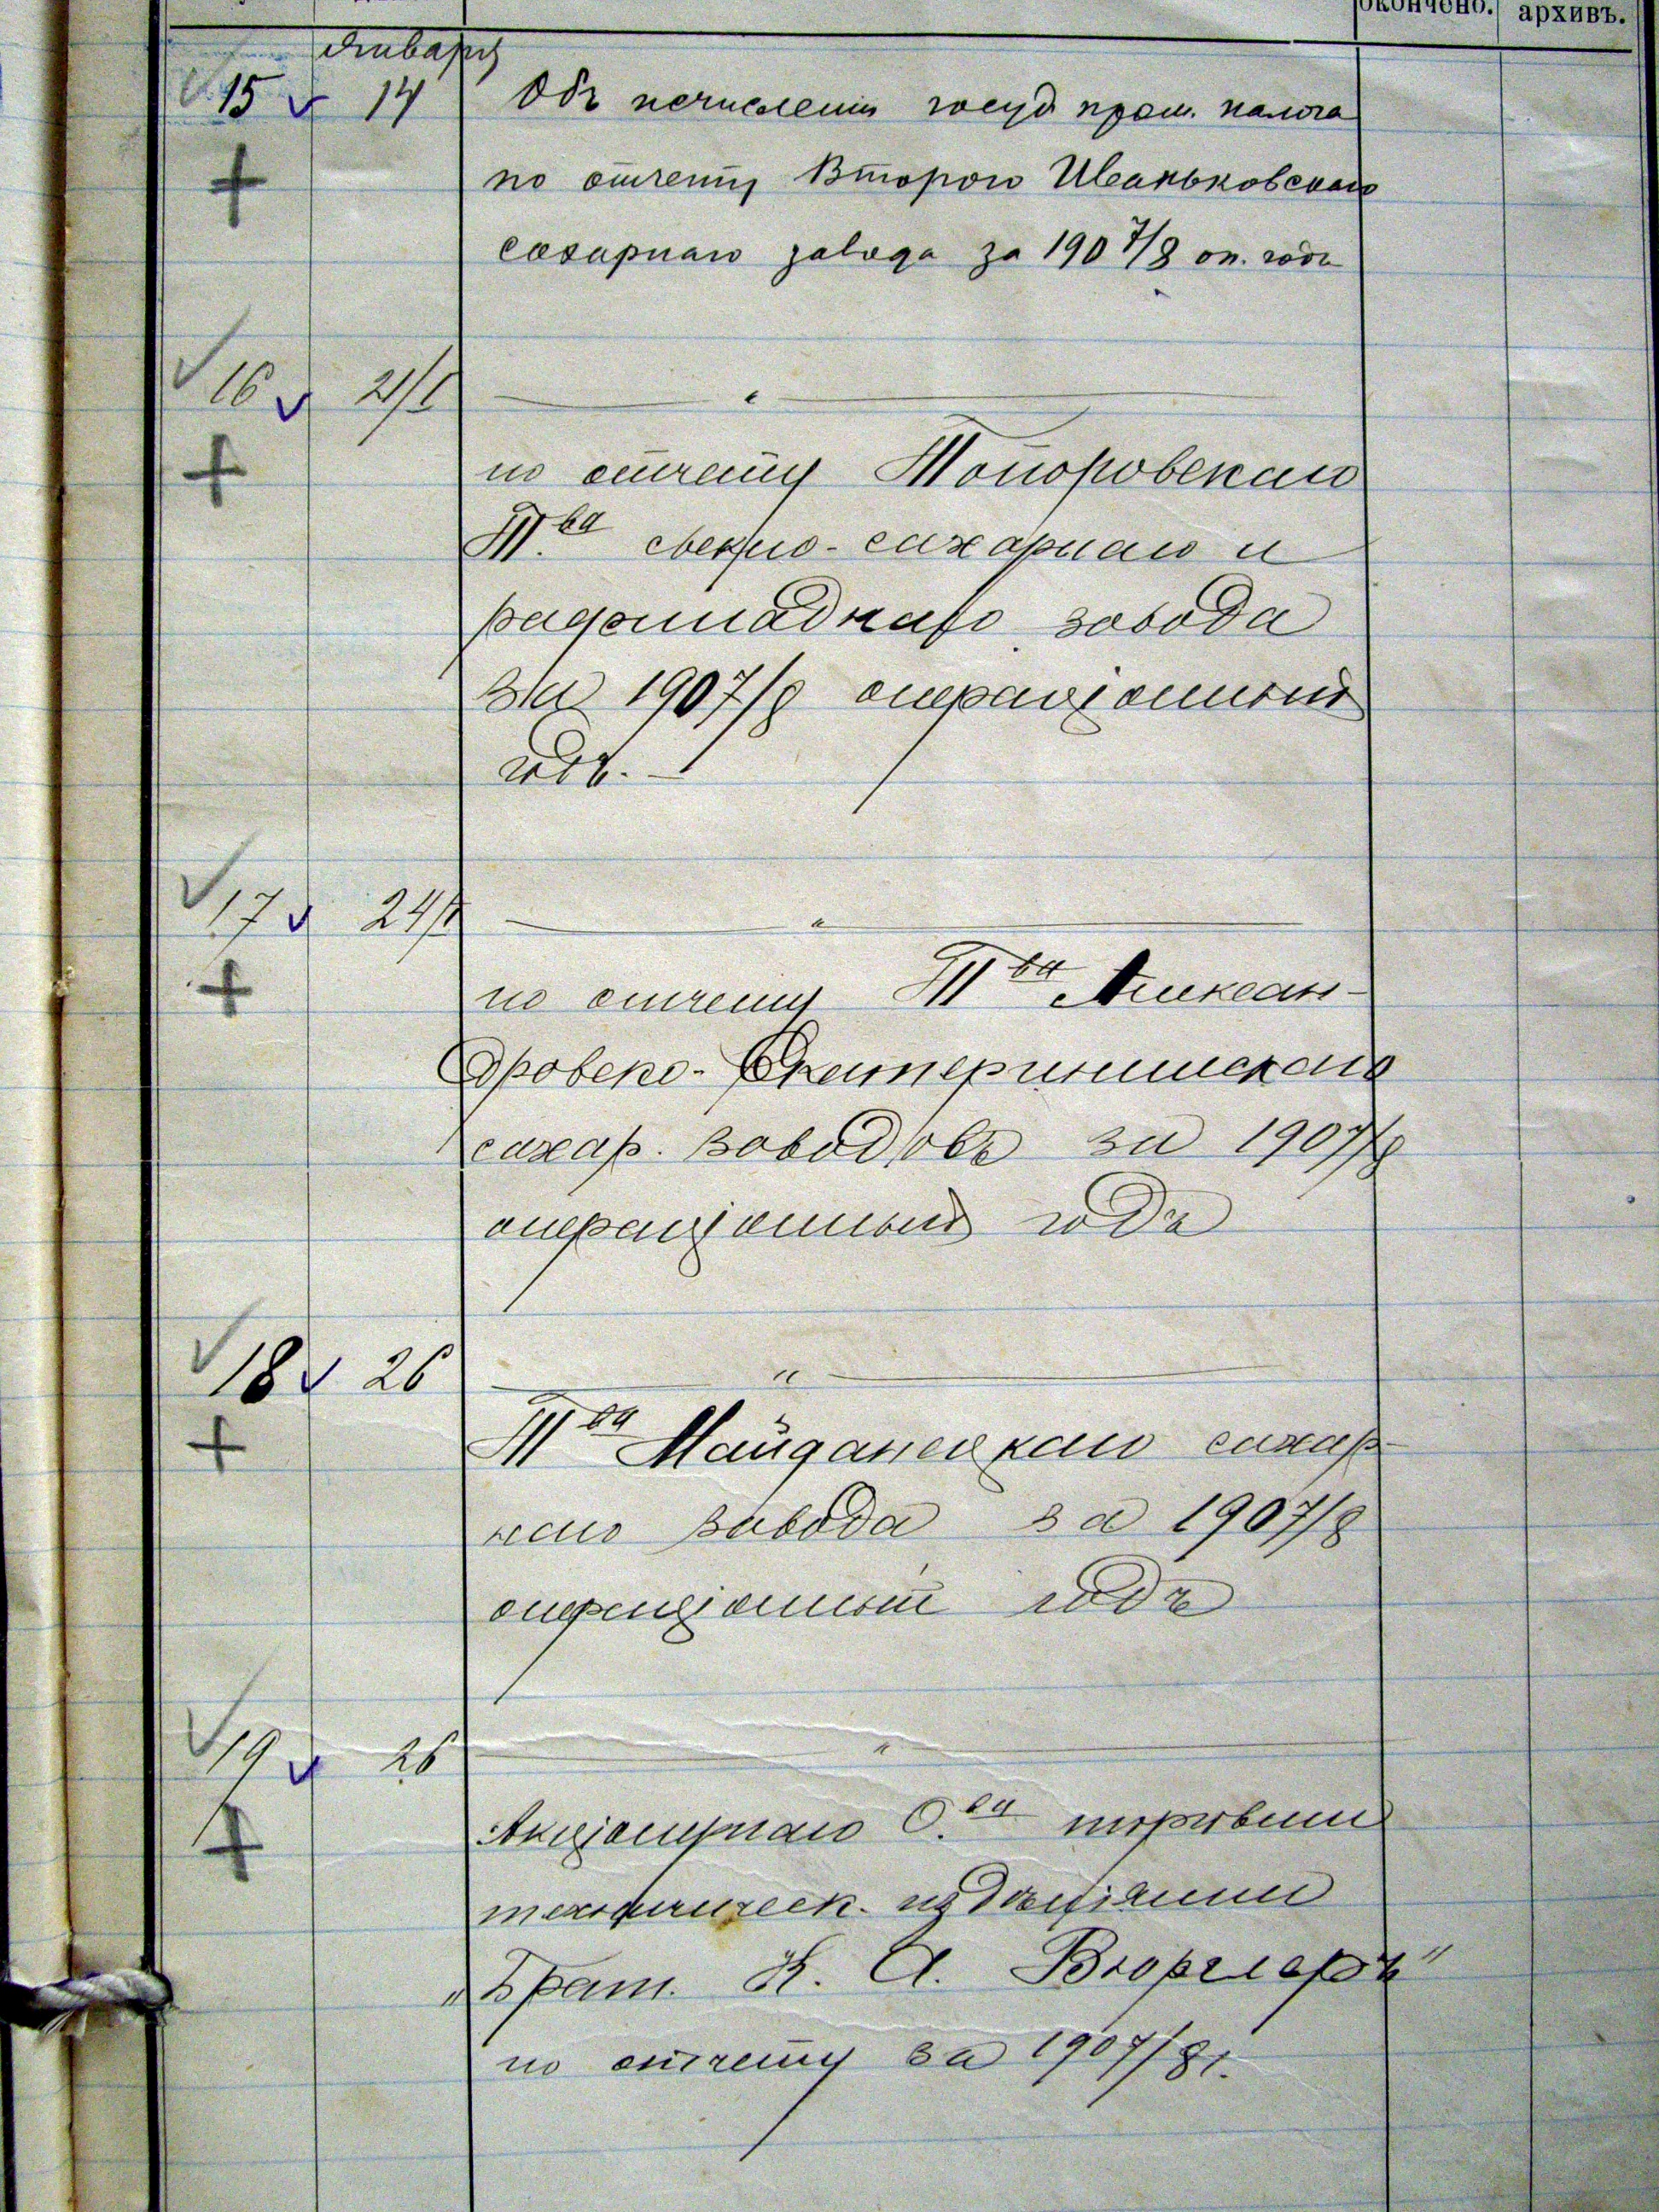 окончено. архивъ.
Января
15 14 Объ исчисленіи госуд пром. налога
по отчету Второго Иваньковскаго
сахарнаго завода за 1907/8 оп. годъ
16 21/I — " —
по отчету Топоровскаго
Т.ва свекло-сахарнаго и
рафинаднаго завода
за 1907/8 операціонный
годъ. —
17 24/I — " —
по отчету Т ва Алексан-
дровско-Екатерининскаго
сахар. заводовъ за 1907/8
операціонный годъ
18 26 — " —
Т ва Майданецкаго сахар-
наго завода за 1907/8
операціонный годъ
19 26 — " —
Акціонернаго О.ва торговли
техническ. издѣліями
„Брат. К. А. Вюрглеръ"
по отчету за 1907/8 г.